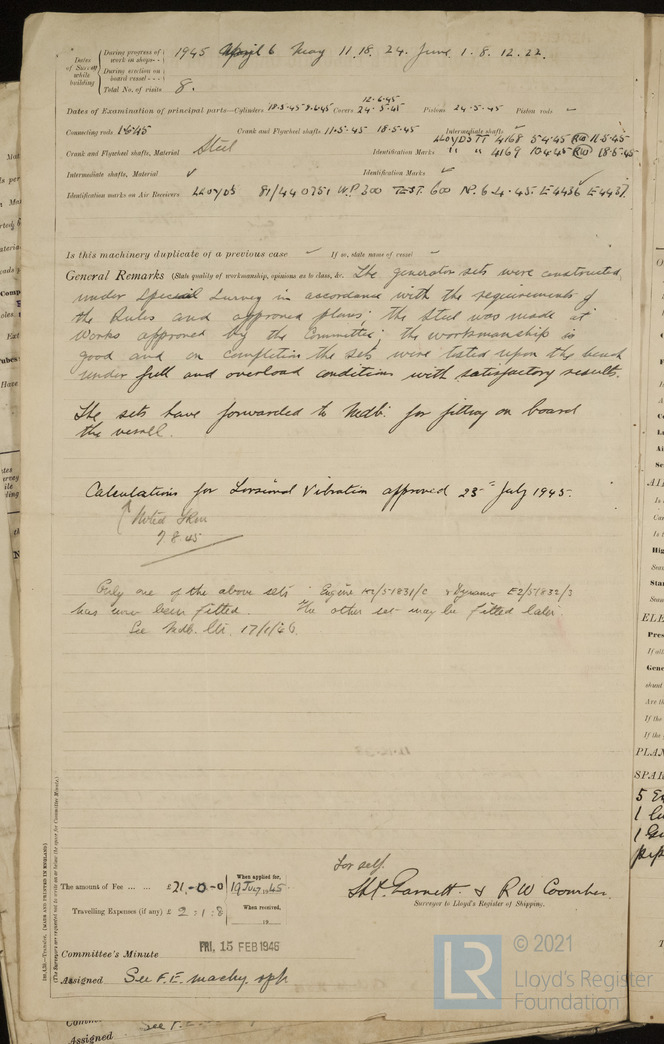 Dates of Survey while building
During progress of work in shops - - 1945 April 6 May 11. 18. 24. June. 1. 8. 12. 22.
During erection on board vessel - - -
Total No. of visits 8.
Dates of Examination of principal parts—Cylinders 18.5.45 Covers 12.6.45 24.5.45 Pistons 24.5.45 Piston rods –
Connecting rods 1.6.45 Crank and Flywheel shafts 11.5.45 18.5.45 Intermediate shafts
Crank and Flywheel shafts, Material Steel Identification Marks LLOYDS TT 4168 5.4.45 RW 11.5.45
" " 4169 10.4.45 RW 18.5.45
Intermediate shafts, Material ✓ Identification Marks ✓
Identification marks on Air Receivers LLOYD'S 81/44 0751 W.P. 300 TEST. 600 6.4.45 E4436 E4437.
Is this machinery duplicate of a previous case – If so, state name of vessel –
General Remarks (State quality of workmanship, opinions as to class, &c. The generator sets were constructed
under Special Survey in accordance with the requirements of
the Rules and approved plans; the steel was made at
Works approved by the Committee; the workmanship is
good and on completion the sets were tested upon the bench
under full and overload conditions with satisfactory results.
The sets have forwarded to Mdb. for fitting on board
the vessell.
Calculations for Torsional Vibration approved 23rd July 1945.
Noted
7.8.45
Only one of the above sets - Engine K2/51831/C & Dynamo E2/51832/3
has now been fitted. The other set may be fitted later.
See Mdb. Ltr. 17/1/46.
1m,4,38—Transfer. (MADE AND PRINTED IN ENGLAND.)
(The Surveyors are requested not to write on or below the space for Committee Minute.)
The amount of Fee ... ... £21.-0-0 When applied for, 19 July 1945
Travelling Expenses (if any) £ 2:1:8 When received, 19
For self.
Garnett. & R W Coomber.
Surveyor to Lloyd's Register of Shipping.
Committee's Minute FRI. 15 FEB 1946
Assigned See F.E. machy. rpt
Assigned
© 2021
LR
Lloyd's Register
Foundation